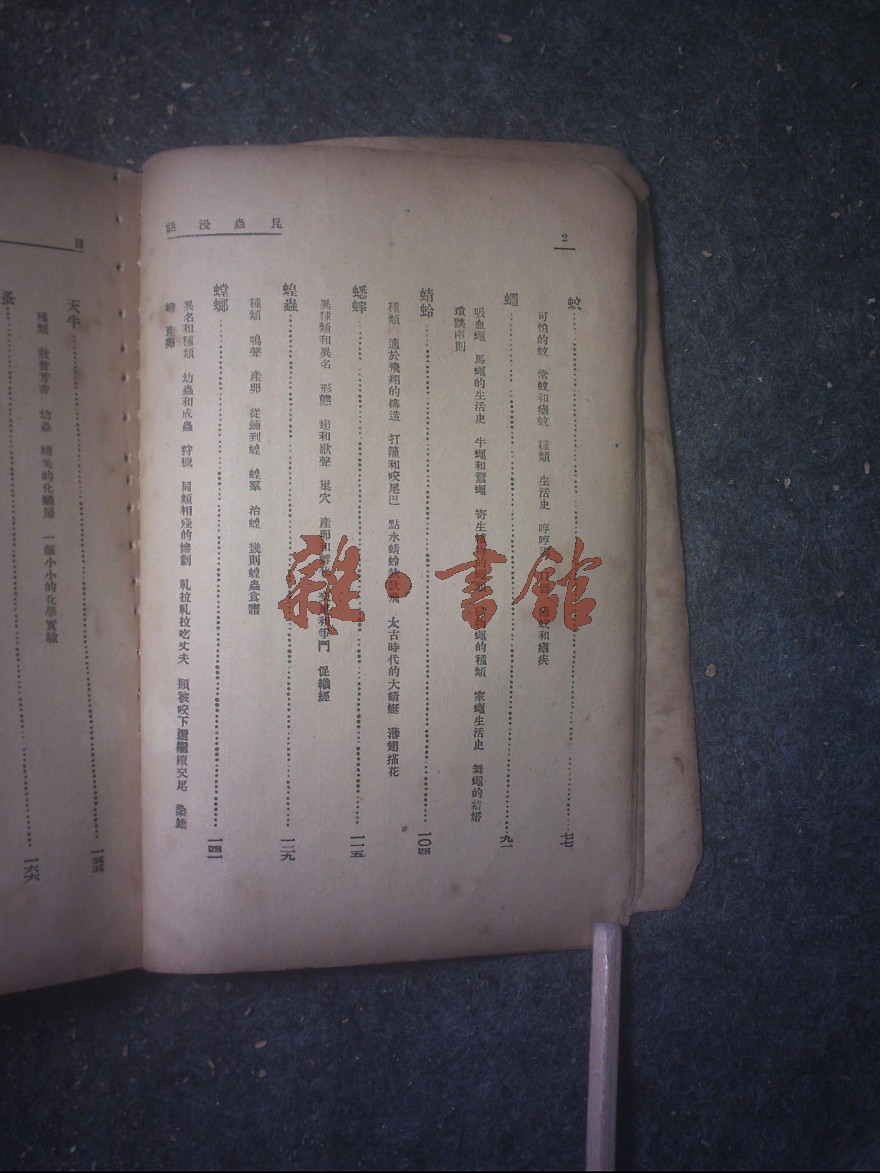 2
昆蟲漫話
蚊……七七
可怕的蚊　常蚊和瘧蚊　種類　生活史　哼哼調　蚊和瘧疾
蠅……九一
吸血蠅　馬蠅的生活史　牛蠅和蠶蠅　寄生　蠅的種類　家蠅生活史　舞蠅的結婚
瑣談兩則
蜻蛉……一〇四
種類　適於飛翔的構造　打箍和咬尾巴　點水蜻蛉款款飛　太古時代的大蜻蜓　薄翅描花
蟋蟀……一一五
異種類和異名　形態　翅和歌聲　巢穴　產卵和孵化　爭鬥　促織經
蝗蟲……一二九
種類　鳴聲　產卵　從蝻到蝗　蝗羣　治蝗　幾則蝗蟲食譜
螳螂……一四一
異名和種類　幼蟲和成蟲　狩獵　同類相殘的慘劇　軋拉軋拉吃丈夫　頭被咬下還繼續交尾　桑螵
蛸　產卵
目
天牛……一五五
種類　散發芳香　幼蟲　精美的化蛹房　一個小小的化學實驗
蚤……一六六
雜·書館